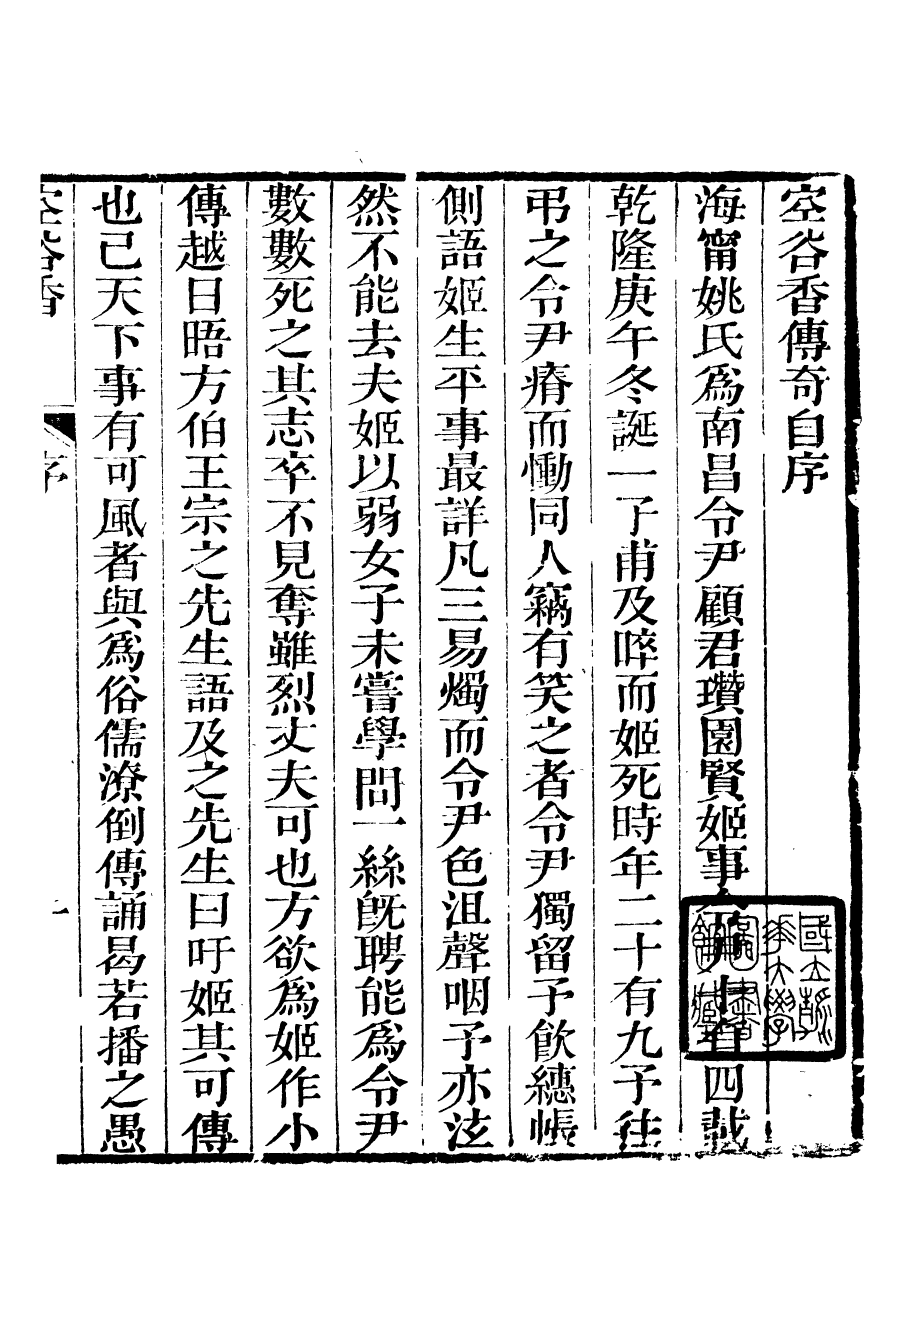 空谷香傳奇自序
海甯姚氏爲南昌令尹顧君瓚園賢姬事十有四載
乾隆庚午冬誕一子甫及啐而姬死時年二十有九予往
弔之令尹瘠而慟同人竊有笑之者令尹獨留予飮繐帳
側語姬生平事最詳凡三易燭而令尹色沮聲咽予亦泫
然不能去夫姬以弱女子未嘗學問一絲旣聘能爲令尹
數數死之其志卒不見奪雖烈丈夫可也方欲爲姬作小
傳越日晤方伯王宗之先生語及之先生曰吁姬其可傳
也已天下事有可風者與爲俗儒潦倒傳誦曷若播之愚
空谷香
序
一